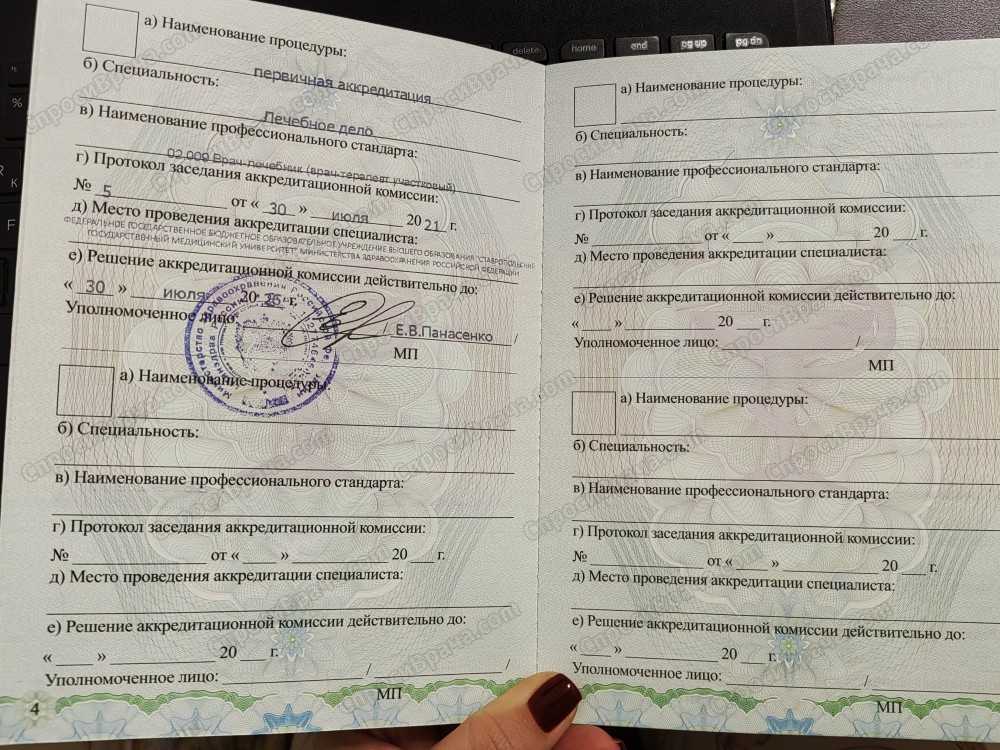 а) Наименование процедуры:
первичная аккредитация
б) Специальность:
Лечебное дело
в) Наименование профессионального стандарта:
02.009 Врач-лечебник (врач-терапевт участковый)
г) Протокол заседания аккредитационной комиссии:
№ 5 от « 30 » июля 20 21 г.
д) Место проведения аккредитации специалиста:
ФЕДЕРАЛЬНОЕ ГОСУДАРСТВЕННОЕ БЮДЖЕТНОЕ ОБРАЗОВАТЕЛЬНОЕ УЧРЕЖДЕНИЕ ВЫСШЕГО ОБРАЗОВАНИЯ "СТАВРОПОЛЬСКИЙ
ГОСУДАРСТВЕННЫЙ МЕДИЦИНСКИЙ УНИВЕРСИТЕТ" МИНИСТЕРСТВА ЗДРАВООХРАНЕНИЯ РОССИЙСКОЙ ФЕДЕРАЦИИ
е) Решение аккредитационной комиссии действительно до:
« 30 » июля 20 26 г.
Уполномоченное лицо: / Е.В.Панасенко /
МП
а) Наименование процедуры:
б) Специальность:
в) Наименование профессионального стандарта:
г) Протокол заседания аккредитационной комиссии:
№ от « » 20 г.
д) Место проведения аккредитации специалиста:
е) Решение аккредитационной комиссии действительно до:
« » 20 г.
Уполномоченное лицо: / /
МП
4
а) Наименование процедуры:
б) Специальность:
в) Наименование профессионального стандарта:
г) Протокол заседания аккредитационной комиссии:
№ от « » 20 г.
д) Место проведения аккредитации специалиста:
е) Решение аккредитационной комиссии действительно до:
« » 20 г.
Уполномоченное лицо: /
МП
а) Наименование процедуры:
б) Специальность:
в) Наименование профессионального стандарта:
г) Протокол заседания аккредитационной комиссии:
№ от « » 20 г.
д) Место проведения аккредитации специалиста:
е) Решение аккредитационной комиссии действительно до:
« » 20 г.
Уполномоченное лицо: /
МП
delete
home
end
pg up
pg dn
СпросиВрача.com